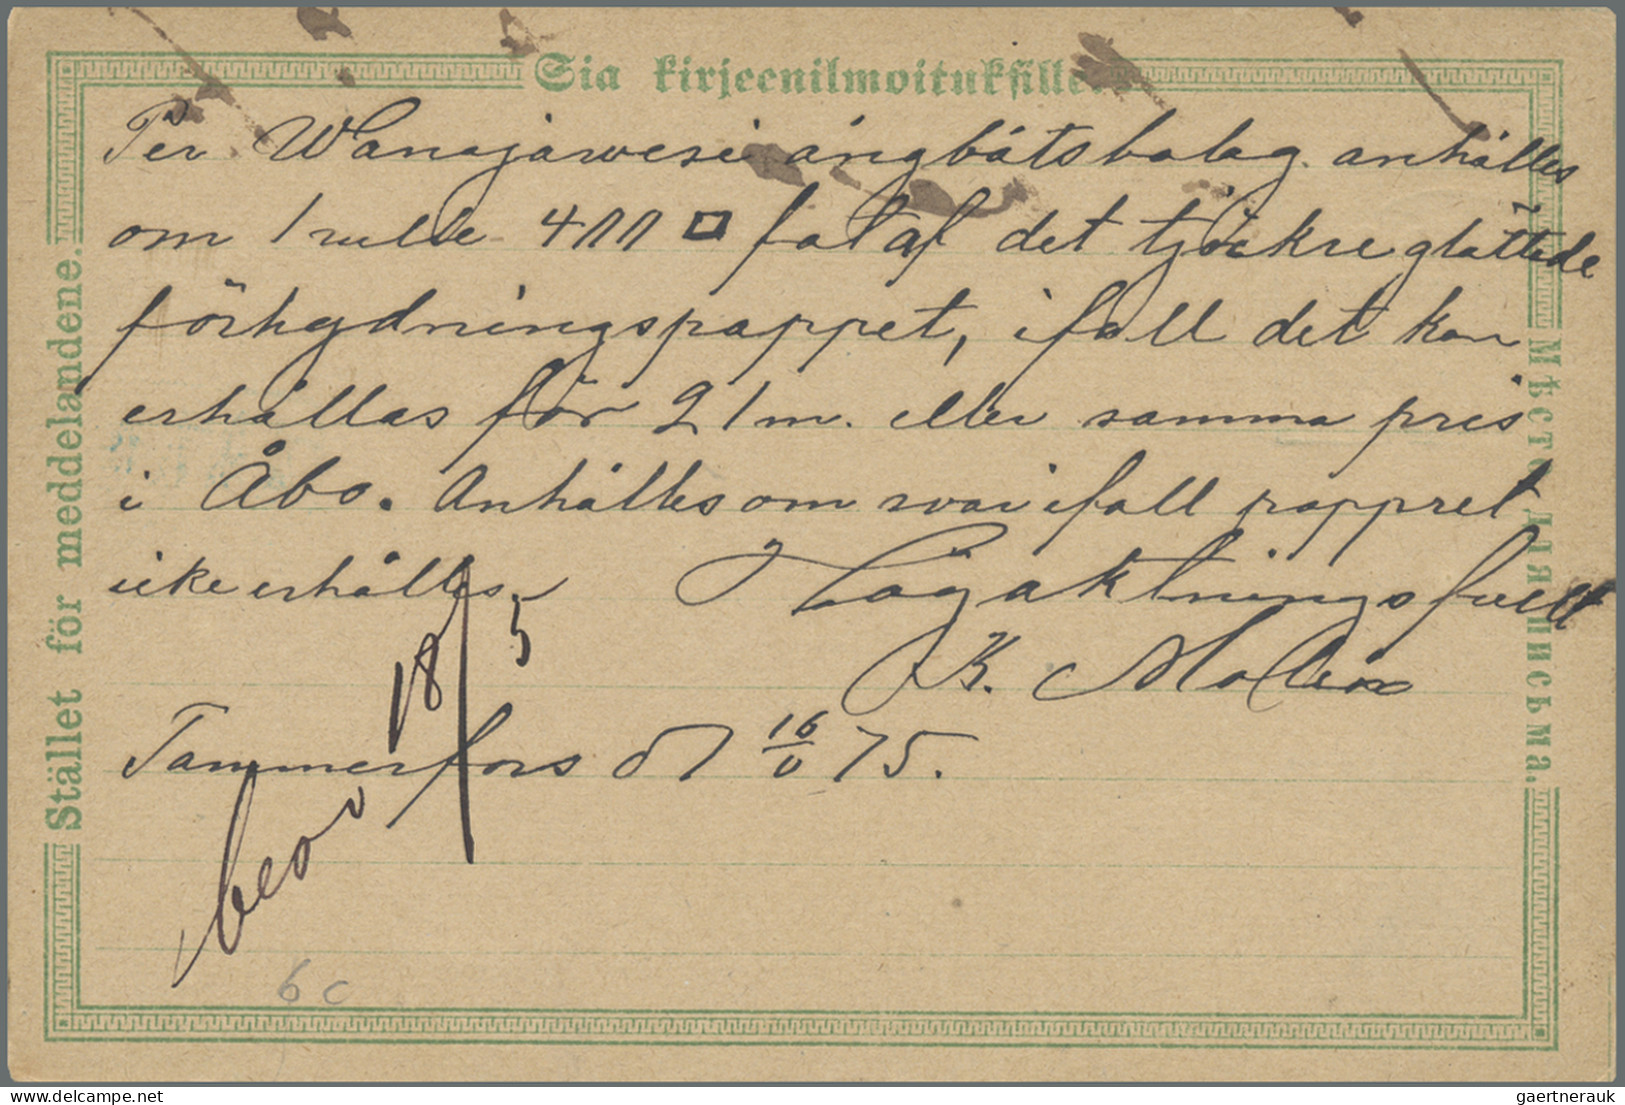 Sia kirjeenilmoituksille
Per Wanajawesi ångbåtsbolag anhålles
om 1 rulle 400 □ fot af det tjockre glättade
förhydningspappet, ifall det kan
erhållas för 21 m. eller samma pris
i Åbo. Anhålles om svar ifall pappret
icke erhålles.
Högaktningsfullt
K. Molin
18/5
Tammerfors d 16/5 75.
besv
6c
Stället för meddelandene.
Мѣсто для письма.
delcampe.net
gaertnerauk